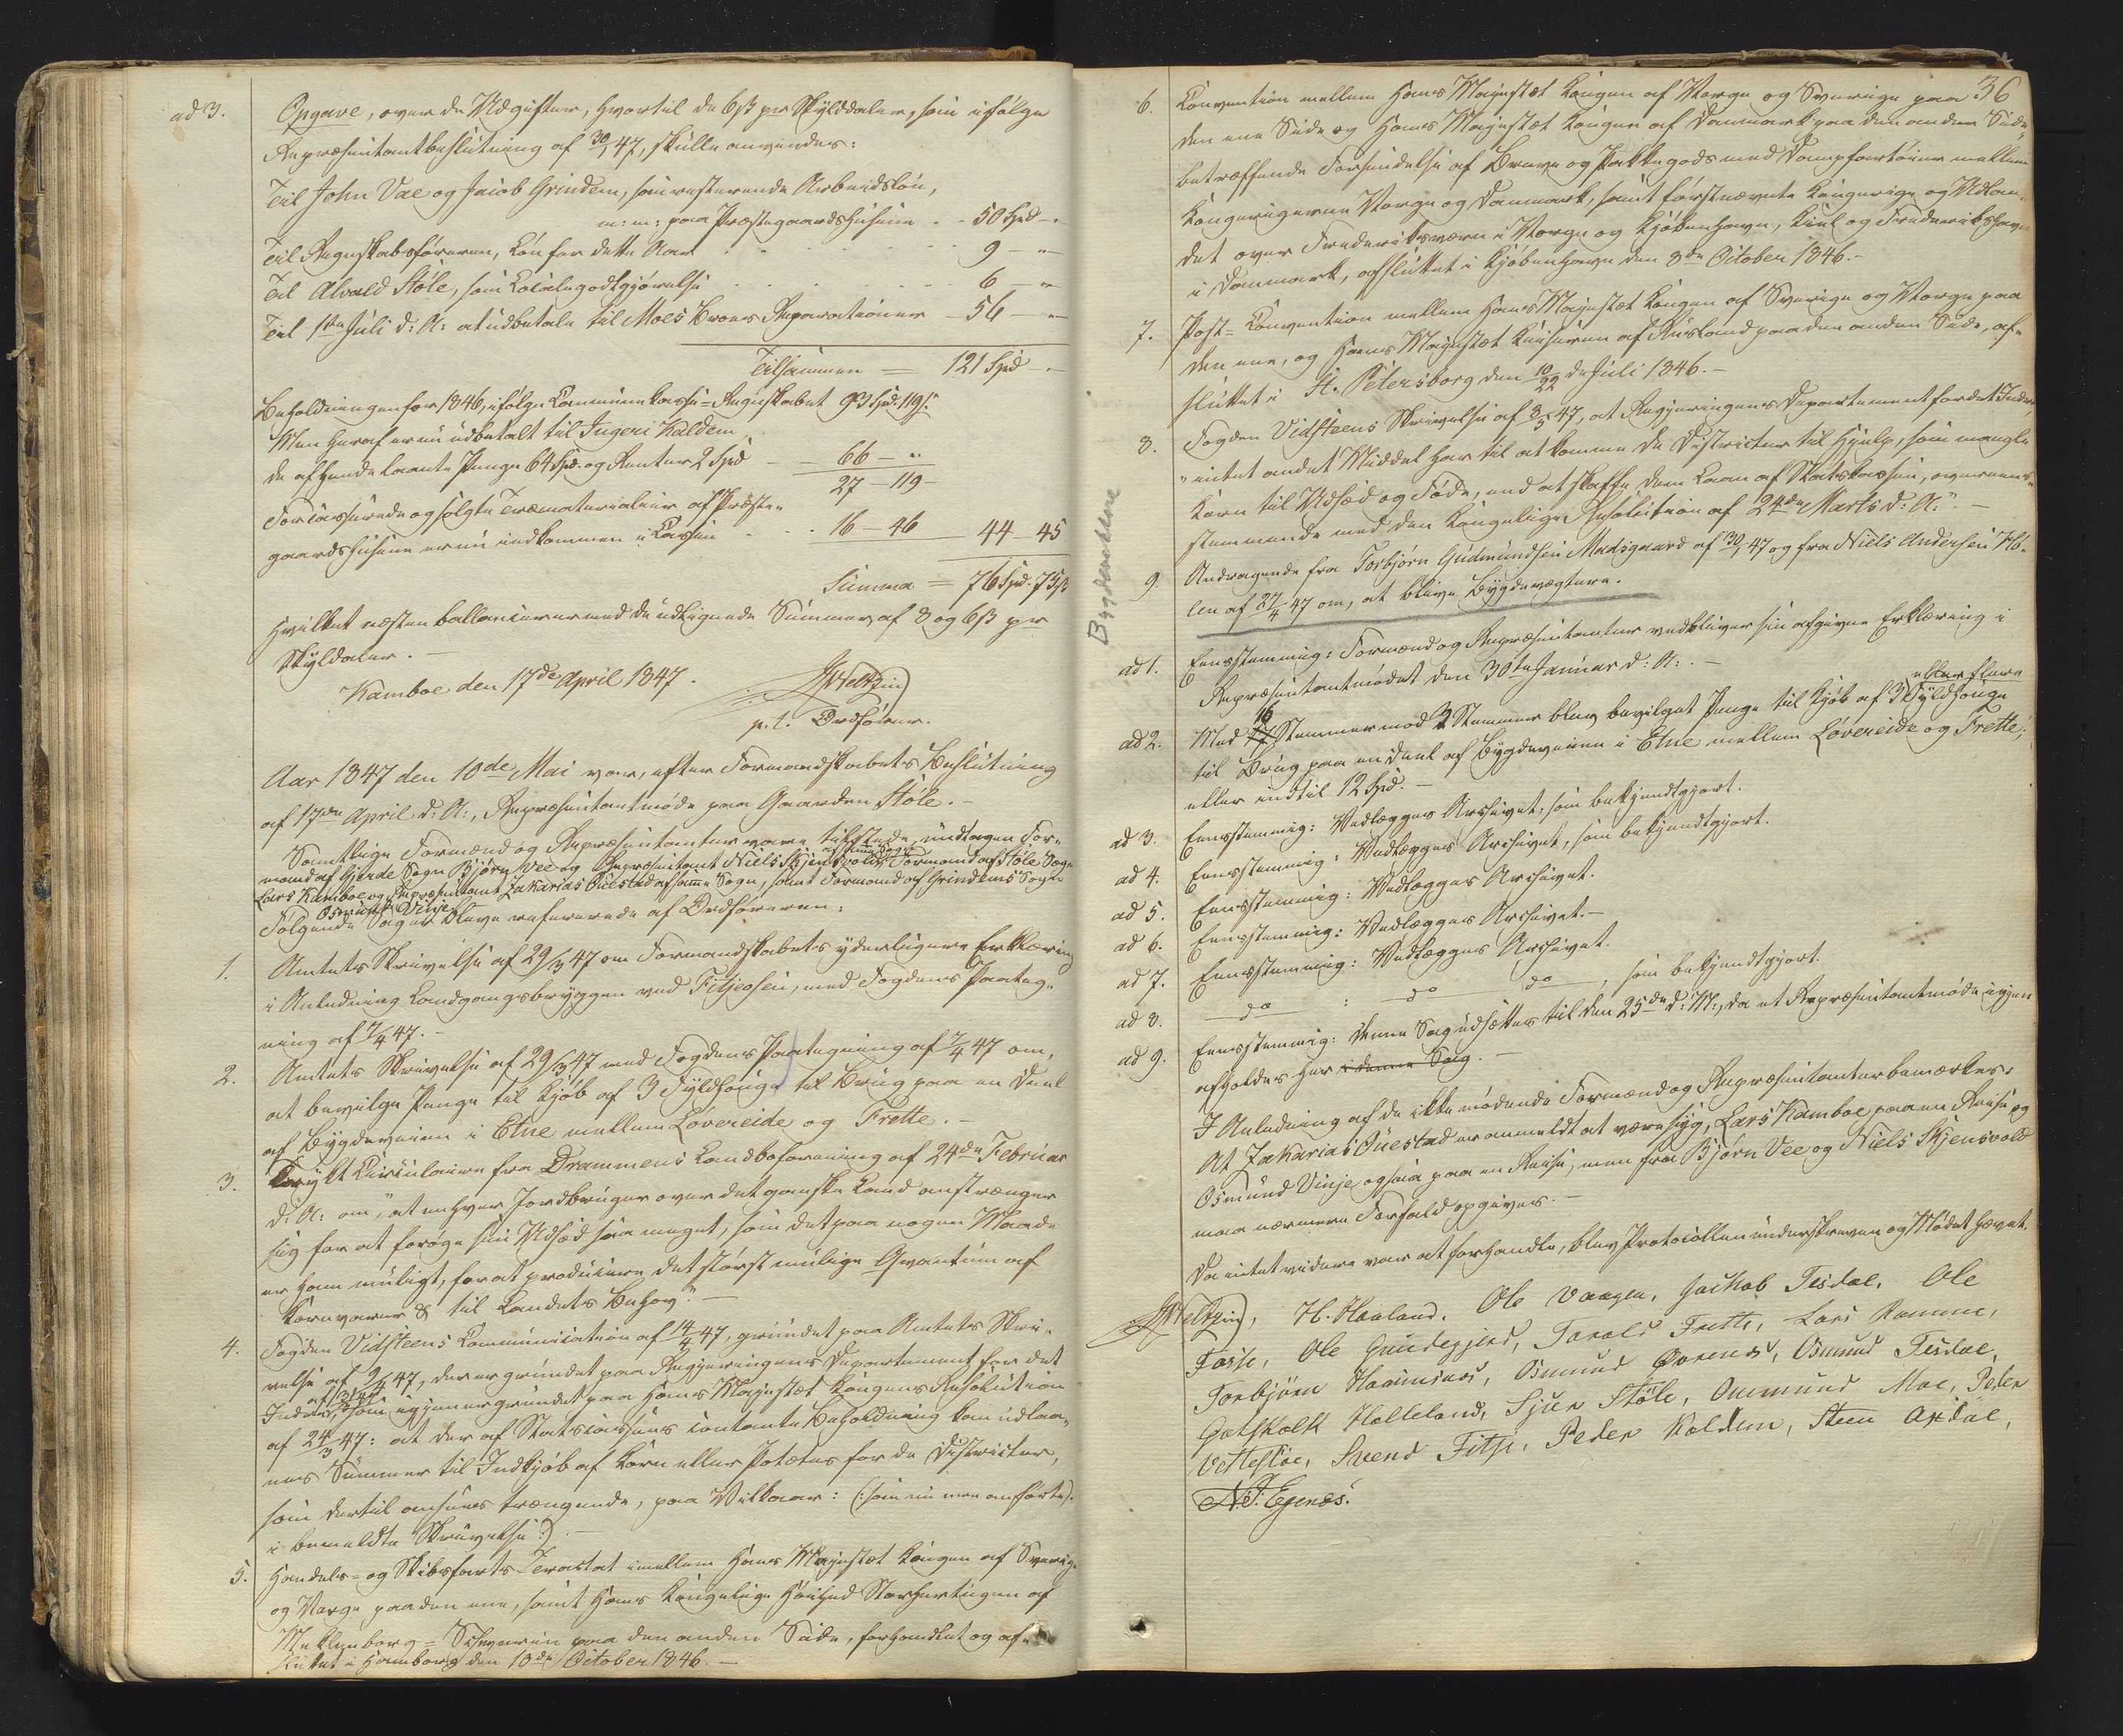 ad 3. Opgave, over de Udgifter, hvortil de 6 ß pr Skylddaler, som ifølge
Repræsentantbeslutning af 30/1 47, skulle anvendes:
Til John Vae og Jacob Grindem, som resterende Arbeidsløn,
m: m: paa Præstegaardshusene - - 50 Spd - "
Til Regnskabsføreren, Løn for dette Aar 9 - "
Til Alvald Støle, som Localegodtgjørelse 6 - "
Til 1ste Juli d: A: at udbetale til Moes Broes Reparationer - 56 - "
Tilsammen = 121 Spd - "
Beholdningen for 1846, ifølge Communekasse-Regnskabet 93 Spd. 119 ß.
Men heraf er nu udbetalt til Ingeri Kaldem
de af hende laante Penge 64 Spd. og Renter 2 Spd - 66 - "
27 - 119 -
For casserede og solgte Træmaterialier af Præste-
gaardshusene er nu indkommen i Cassen - - 16 - 46 44 - 45
Summa = 76 Spd. 75 ß
hvilket næsten ballancerer med de udlignede Summer af 8 og 6 ß pr
Skyldaler. -
Kamboe den 17de April 1847.
JWeltzin
p. t. Ordfører.
Aar 1847 den 10de Mai var, efter Formandskabets Beslutning
af 17de April d: A:, Repræsentantmøde paa Gaarden Støle. -
Samtlige Formænd og Repræsentanter vare tilstede, undtagen For-
mand af Gjerde Sogn Bjørn Vee og Repræsentant Niels Skjensvold af samme Sogn, Formand af Støle Sogn
Lars Kamboe og Repræsentant Zakarias Øuestad af samme Sogn, samt Formand af Grindems Sogn
Osmund Vinje.
Følgende Sager bleve refererede af Ordføreren:
1. Amtets Skrivelse af 29/3 47 om Formandskabets yderligere Erklæring
i Anledning Landgangsbryggen ved Fitjeosen, med Fogdens Paateg-
ning af 7/4 47. -
2. Amtets Skrivelse af 29/3 47 med Fogdens Paategning af 7/4 47 om,
at bevilge Penge til Kjøb af 3 Fyldhouge til Brug paa en Deel
af Bygdeveien i Etne mellem Løvereide og Frette. -
3. Trykt Circulaire fra Drammens Landboforening af 24de Februar
d: A: om, "at enhver Jordbruger over det ganske Land anstrænger
sig for at forøge sin Udsæd saa meget, som det paa nogen Maade
er ham muligt, for at producere det størst mulige Qvantum af
Kornvarer & til Landets Behov". -
4. Fogden Vidsteens Communication af 14/4 47, grundet paa Amtets Skri-
velse af 9/4 47, der er grundet paa Regjeringens Departement for det
Indre, af 31/3 47 som igjen er grundet paa Hans Majestæt Kongens Resolution
af 24/3 47: at der af Statscassens contante Beholdning kan udlaa-
nes Summer til Indkjøb af Korn eller Potetes for de Districter,
som dertil ansees trængende, paa Vilkaar: (: som nu ere anførte
i bemeldte Skrivelse :). -
5. Handels- og Skibsfarts Tractat imellem Hans Majestæt Kongen af Sverige
og Norge paa den ene, samt Hans Kongelige Høihed Storhertugen af
Meklenborg-Schwerin paa den anden Side, forhandlet og af-
sluttet i Hamborg den 10de October 1846. -
36
6. Convention mellem Hans Majestæt Kongen af Norge og Sverige paa
den ene Side og Hans Majestæt Kongen af Danmark paa den anden Side,
betræffende Forsendelse af Breve og Pakkegods med Dampfartøier mellem
Kongerigerne Norge og Danmark, samt førstnævnte Kongerige og Udlan-
det over Frederiksværn i Norge og Kjøbenhavn, Kiel og Frederikshavn
i Danmark, afsluttet i Kjøbenhavn den 8de October 1846. -
7. Post-Convention mellem Hans Majestæt Kongen af Sverige og Norge paa
den ene, og Hans Majestæt Keiseren af Rusland paa den anden Side, af-
sluttet i St. Petersborg den 10/22 de Juli 1846. -
8. Fogden Vidsteens Skrivelse af 3/5 47, at Regjeringens Departement for det Indre,
"intet andet Middel har til at komme de Districter til Hjelp, som mangle
Korn til Udsæd og Føde, end at skaffe dem Laan af Statskassen, overeens-
stemmende med den Kongelige Resolution af 24de Marts d: A:". -
Bygdevægtere
9. Andragende fra Torbjørn Gudmundsen Madsgaard af 30/1 47 og fra Niels Andersen Hø-
len af 27/4 47 om, at blive Bygdevægtere.
ad 1. Eensstemmig: Formænd og Repræsentanter vedbliver sin afgivne Erklæring i
Repræsentantmødet den 30te Januar d: A: . -
ad 2. Med 16 Stemmer mod 2 Stemmer blev bevilget Penge til Kjøb af 3 eller flere Fyldhouge
til Brug paa en Deel af Bygdeveien i Etne mellem Løvereide og Frette,
eller indtil 12 Spd. -
ad 3. Eensstemmig: Vedlægges Archivet, som bekjendtgjort.
ad 4. Eensstemmig: Vedlægges Archivet, som bekjendtgjort.
ad 5. Eensstemmig: Vedlægges Archivet.
ad 6. Eensstemmig: Vedlægges Archivet. -
ad 7. Eensstemmig: Vedlægges Archivet.
ad 8. do : do do , som bekjendtgjort.
ad 9. Eensstemmig: Denne Sag udsættes til den 25de d: M:, da et Repræsentantmøde igjen
afholdes her i denne Sag. -
I Anledning af de ikke mødende Formænd og Repræsentanter bemærkes:
At Zakarias Øuestad er anmeldt at være syg, Lars Kamboe paa en Reise og
Osmund Vinje ogsaa paa en Reise, men fra Bjørn Vee og Niels Skjensvold
maa nærmere Forfald opgives. -
Da intet videre var at forhandle, blev Protocollen underskreven og Mødet hævet.
JWeltzin, H. Haaland, Ole Vaagen, Jackob Tesdal, Ole
Fosse, Ole Grindegjerd, Tarald Frette, Lars Ramme,
Torbjörn Haaimsnes, Osmund Örrenes, Osmund Tesdal,
Gotskalk Helleland, Sjur Støle, Ommund Moe, Peder
Vettestøe, Svend Fitje, Peder Kaldem, Steen Axdal,
N. J. Egenæs.